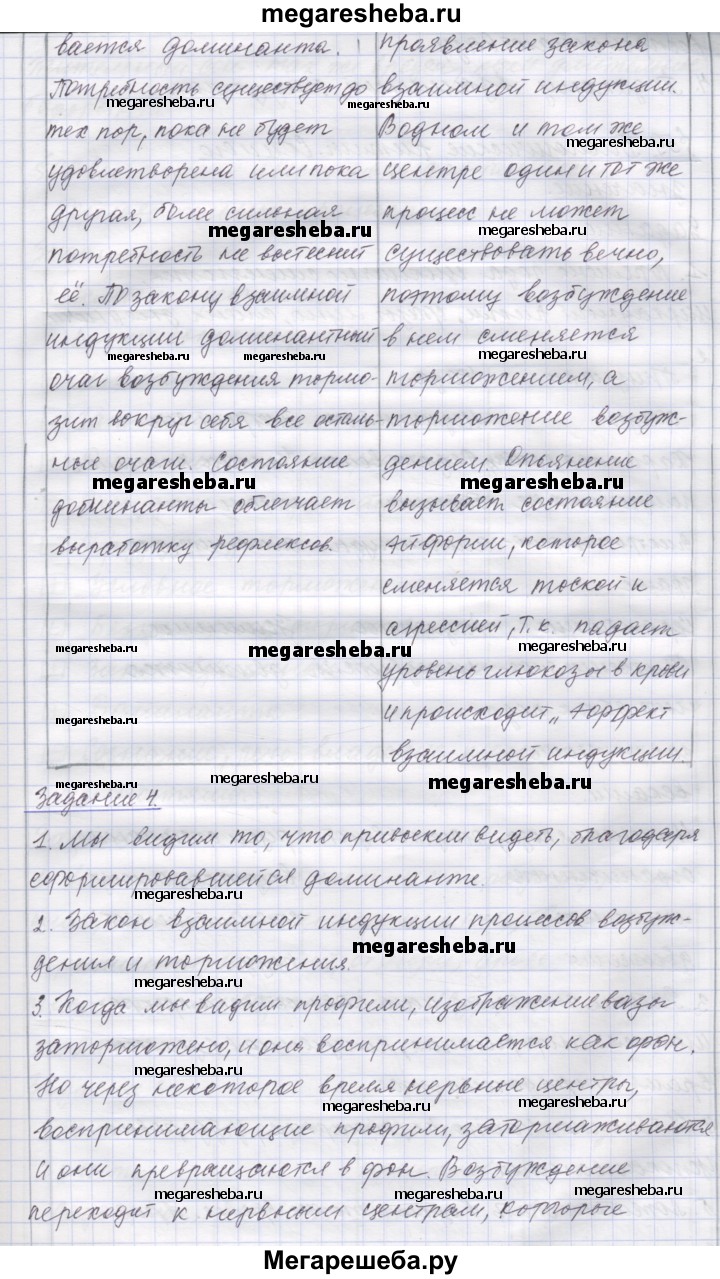 megaresheba.ru
вается доминанта.
Потребность существует до
тех пор, пока не будет
удовлетворена или пока
другая, более сильная
потребность не вытеснит
её. По закону взаимной
индукции доминантный
очаг возбуждения тормо-
зит вокруг себя все осталь-
ные очаги. Состояние
доминанты облегчает
выработку рефлексов.
проявление закона
взаимной индукции.
В одном и том же
центре один и тот же
процесс не может
существовать вечно,
поэтому возбуждение
в нем сменяется
торможением, а
торможение возбуж-
дением. Опьянение
вызывает состояние
эйфории, которое
сменяется тоской и
агрессией, т.к. падает
уровень глюкозы в крови
и происходит „ эффект
взаимной индукции.
Задание 4.
1. Мы видим то, что привыкли видеть, благодаря
сформировавшейся доминанте.
2. Закон взаимной индукции процессов возбуж-
дения и торможения.
3. Когда мы видим профили, изображение вазы
заторможено, и она воспринимается как фон.
Но через некоторое время нервные центры,
воспринимающие профили, затормаживаются
и они превращаются в фон. Возбуждение
переходит к нервным центрам, которые
Мегарешеба.ру